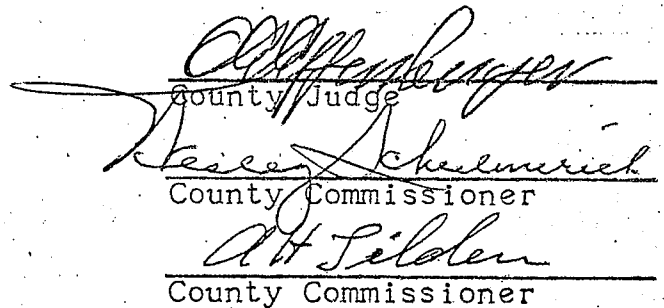 County Judge
Wesley Schulmerich
County Commissioner
A H Tilden
County Commissioner